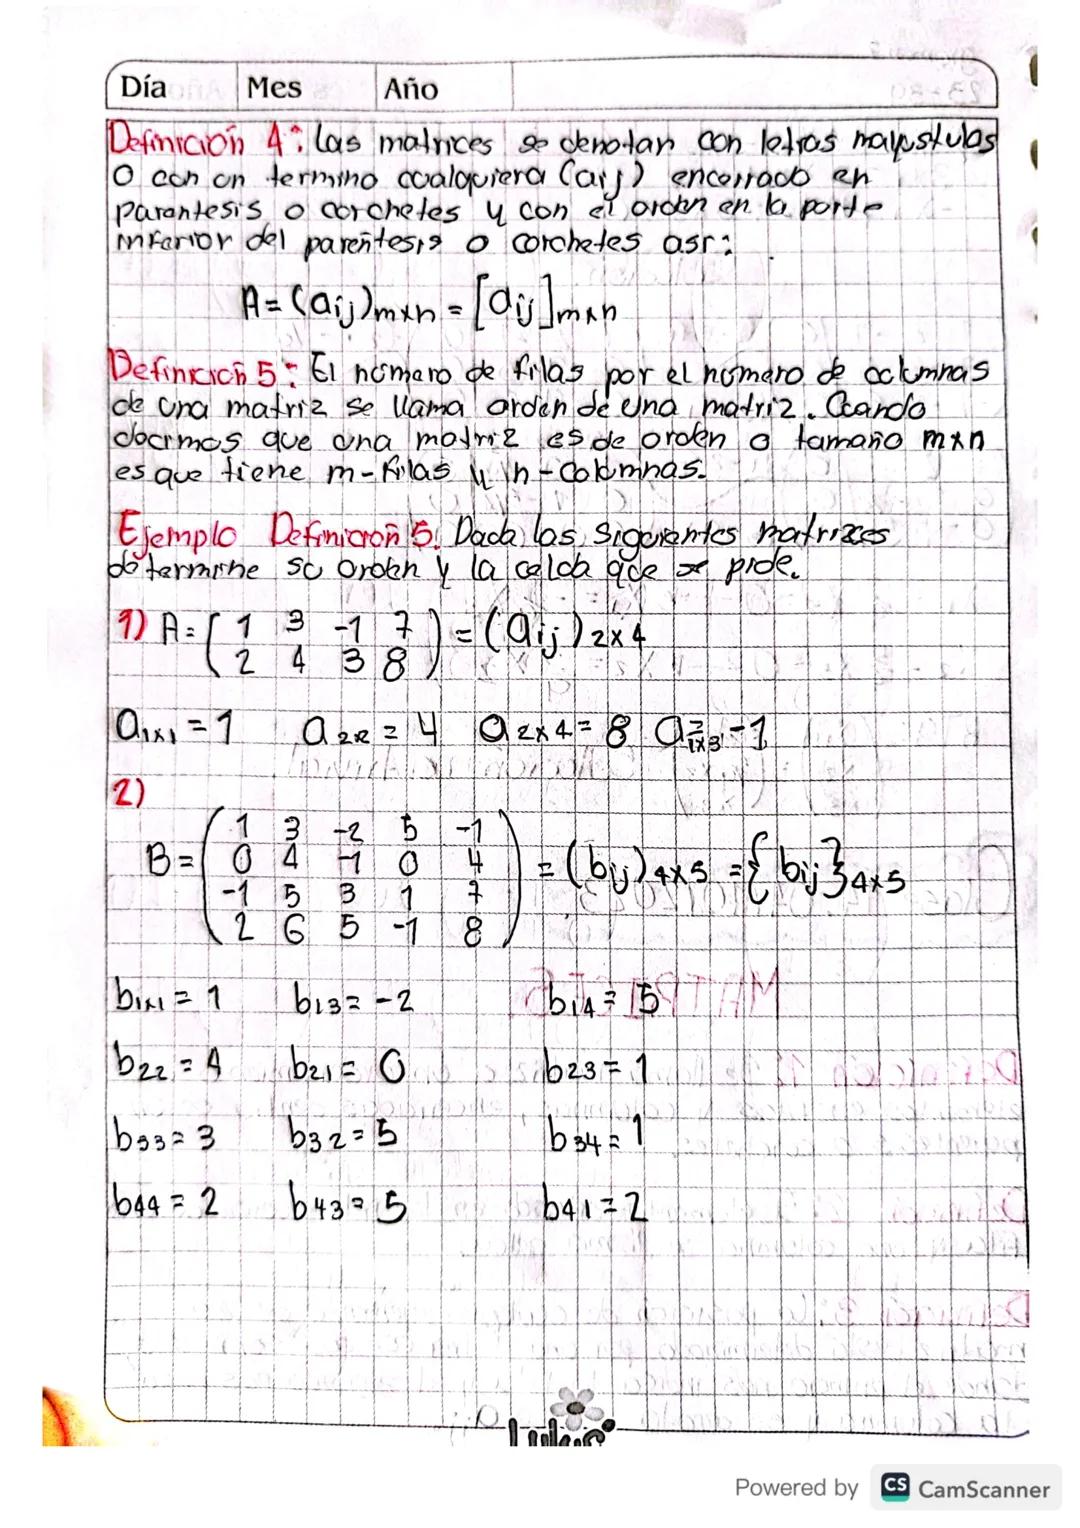 Día Mes Año
Definición 4: las matrices se denotan con letras mayustulas
O con un termino cualquiera (aij) encerrado en
parantesis o corchetes y con el orden en la parte
inferior del parentesis o corchetes asi:
A = (aij)mxn = [aij]mxn
Definición 5: El número de filas por el número de columnas
de una matriz se llama orden de una matriz. Cuando
decimos que una matriz es de orden o tamaño mxn
es que tiene m-filas y n-columnas.
Ejemplo Definición 5. Dada las siguientes matrizes
determine su orden y la celda que se pide.
1) A = ( 1 3 -1 7 ) = (aij) 2x4
2 4 3 8
a1x1 = 1 a2x2 = 4 a2x4 = 8 a1x3 = -1
2)
1 3 -2 5 -1
B = ( 0 4 -1 0 4 ) = (bij) 4x5 = {bij} 4x5
-1 5 3 1 7
2 6 5 -1 8
b1x1 = 1 b13 = -2 b14 = 5
b22 = 4 b21 = 0 b23 = 1
b33 = 3 b32 = 5 b34 = 1
b44 = 2 b43 = 5 b41 = 2
Powered by CS CamScanner